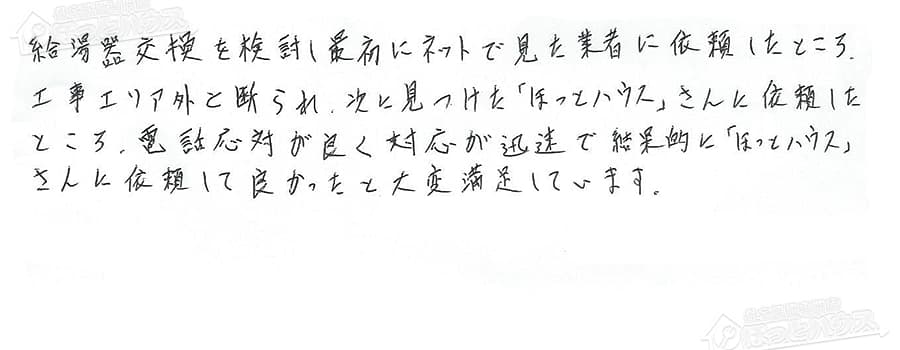 給湯器交換を検討し最初にネットで見た業者に依頼したところ、
工事エリア外と断られ、次に見つけた「ほっとハウス」さんに依頼した
ところ、電話応対が良く対応が迅速で結果的に「ほっとハウス」
さんに依頼して良かったと大変満足しています。
ほっとハウス